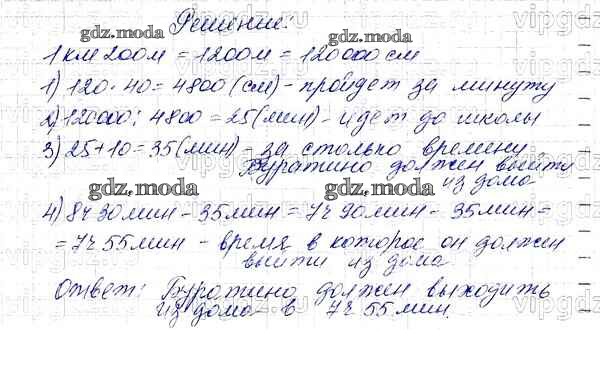 Решение:
gdz.moda gdz.moda
1 км 200м = 1200м = 120000 см
1) 120 · 40 = 4800 (см) - пройдет за минуту
2) 120000 : 4800 = 25 (мин) - идет до школы
3) 25 + 10 = 35 (мин) - за столько времени
Буратино должен выйти
из дома
gdz.moda gdz.moda
4) 8ч 30мин - 35мин = 7ч 90мин - 35мин =
= 7ч 55мин - время в которое он должен
выйти из дома.
gdz.moda gdz.moda
Ответ: Буратино должен выходить
из дома в 7ч 55мин.